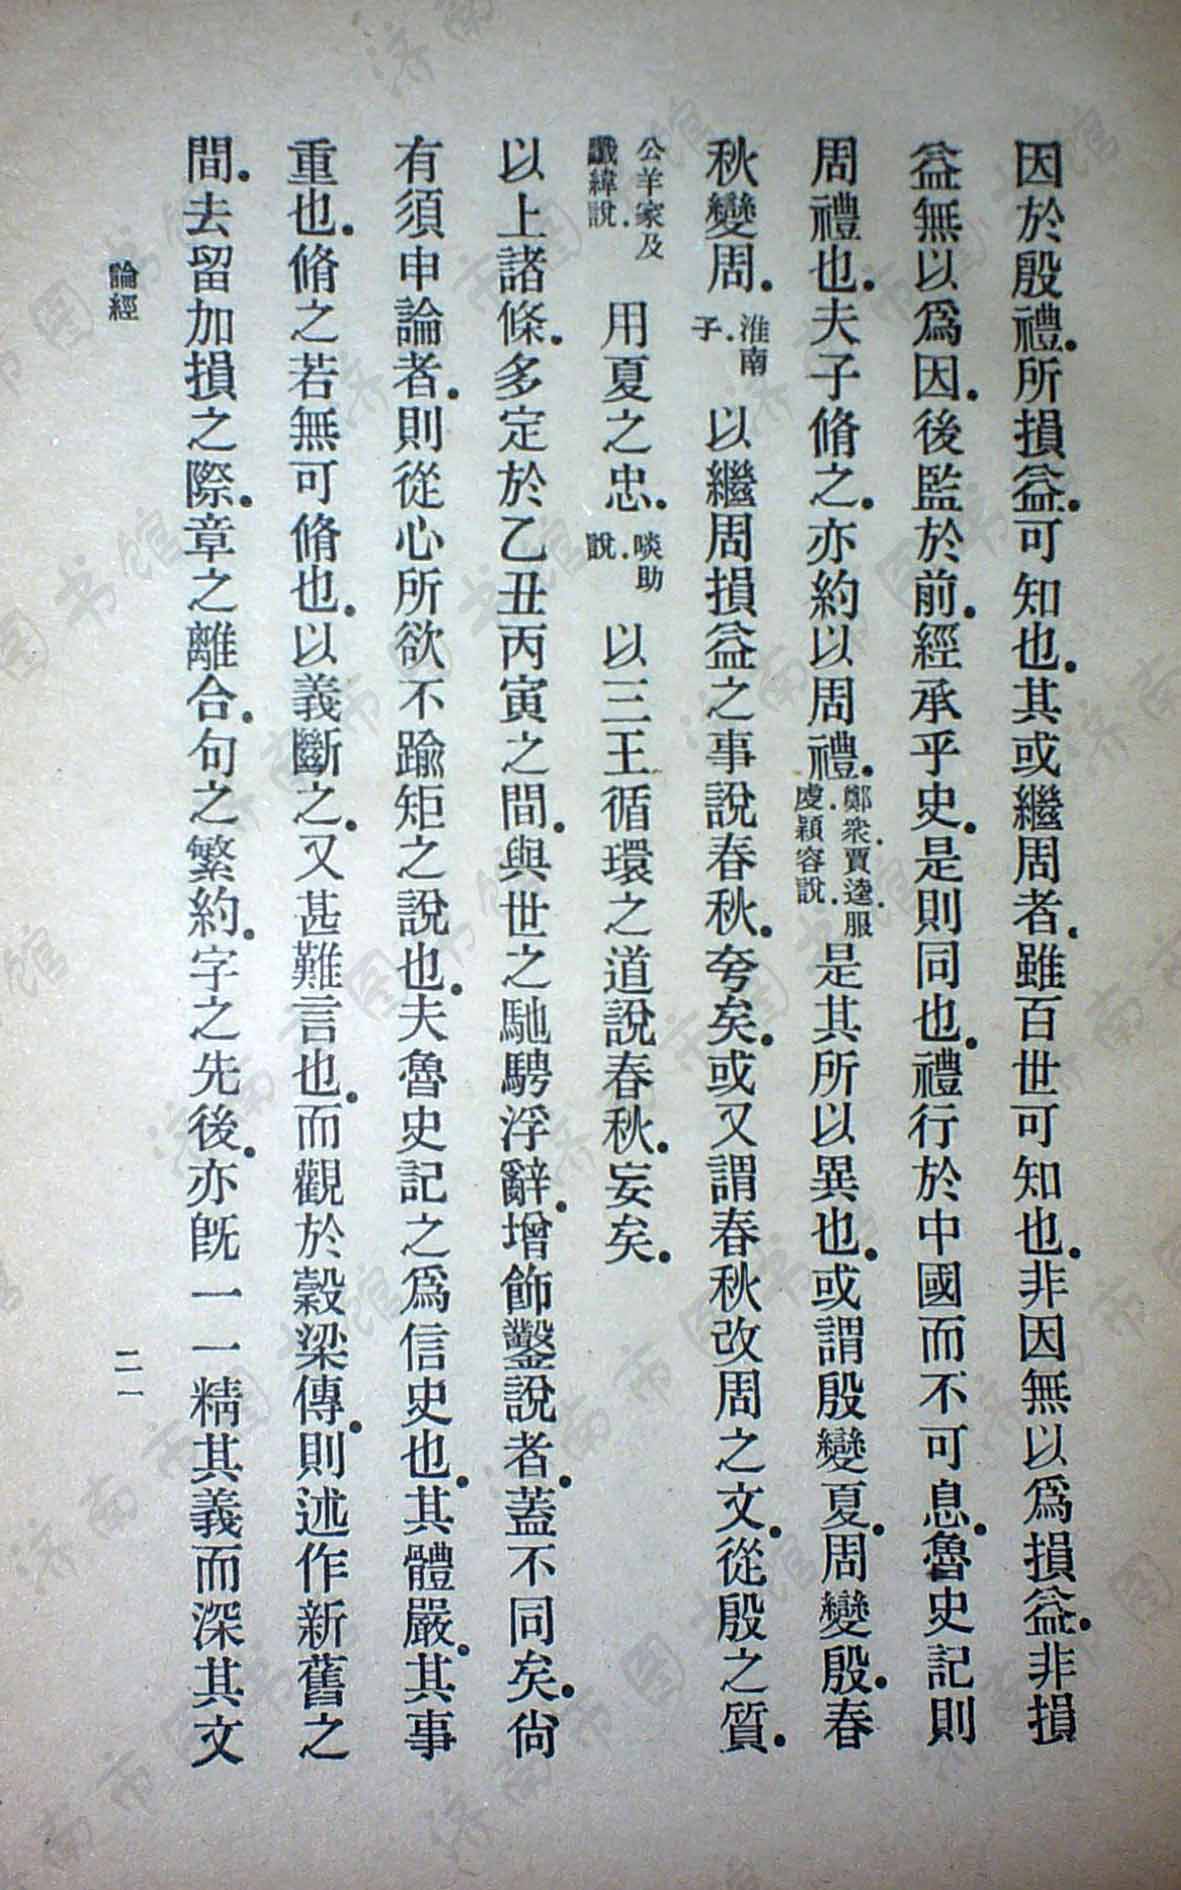 因於殷禮．所損益．可知也．其或繼周者．雖百世可知也．非因無以爲損益．非損
益無以爲因．後監於前．經承乎史．是則同也．禮行於中國而不可息．魯史記則
周禮也．夫子脩之．亦約以周禮．鄭衆．賈逵．服虔．穎容說．是其所以異也．或謂殷變夏．周變殷．春
秋變周．淮南子．以繼周損益之事說春秋．夸矣．或又謂春秋改周之文．從殷之質．
公羊家及讖緯說．用夏之忠．啖助說．以三王循環之道說春秋．妄矣．
以上諸條．多定於乙丑丙寅之間．與世之馳騁浮辭．增飾鑿說者．蓋不同矣．尙
有須申論者．則從心所欲不踰矩之說也．夫魯史記之爲信史也．其體嚴．其事
重也．脩之若無可脩也．以義斷之．又甚難言也．而觀於穀梁傳．則述作新舊之
間．去留加損之際．章之離合．句之繁約．字之先後．亦旣一一精其義而深其文
論經
二一
济南市图书馆